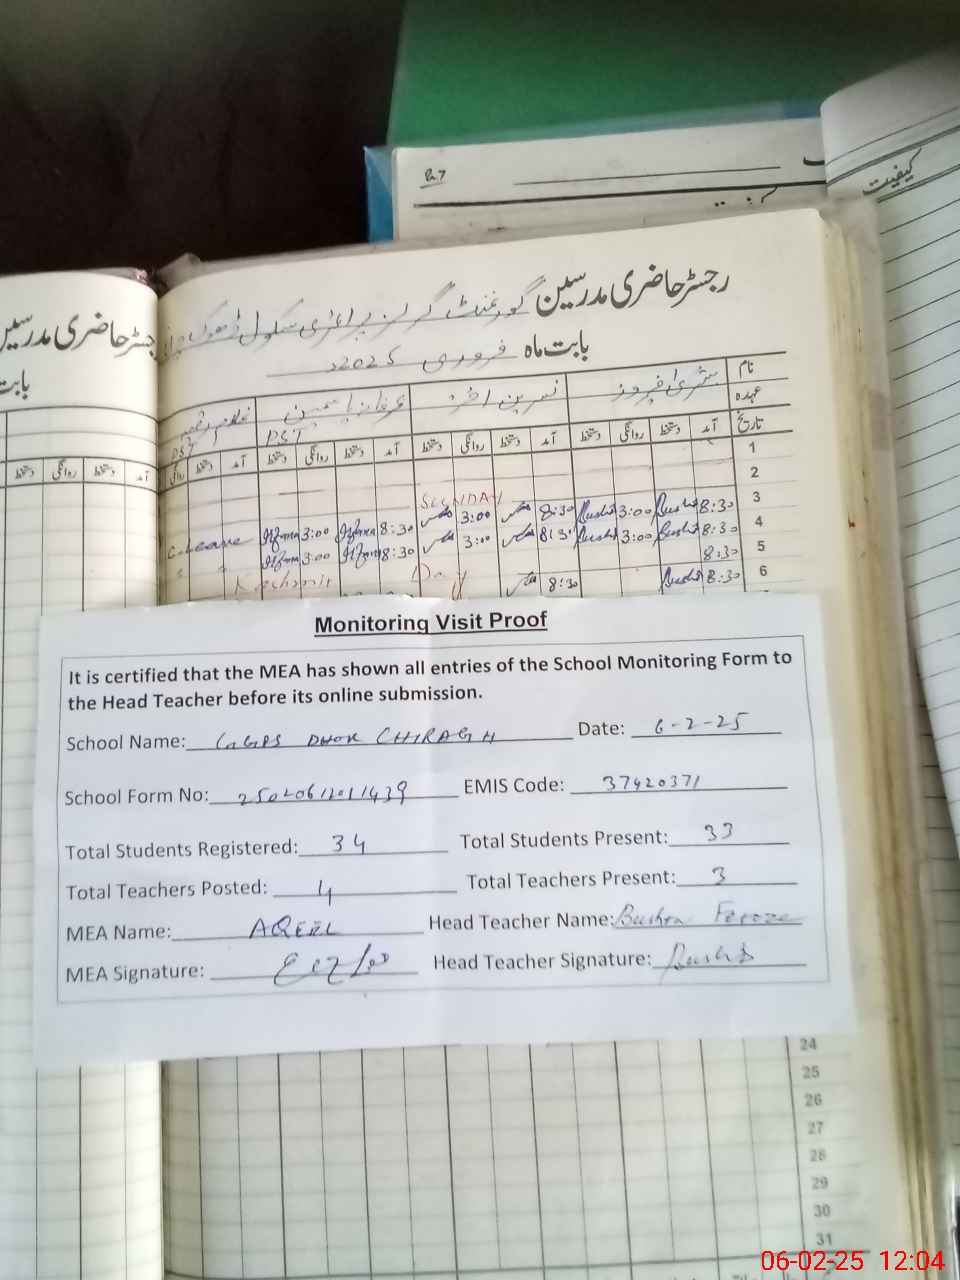 87
کیفیت
رجسٹر حاضری مدرسین گورنمنٹ گرلز پرائمری سکول ڈھوک
بابت ماہ فروری 2025
نام بشریٰ افروز نسرین اختر عرفانہ یاسمین
عہدہ PST PST
تاریخ آمد دستخط روانگی دستخط آمد دستخط روانگی دستخط آمد دستخط روانگی دستخط آمد دستخط روانگی
1
2 SUNDAY
3 8:30 Bushra 3:00 Bushra 8:30 3:00 8:30 Irfana 3:00 Irfana C.Leave
4 8:30 Bushra 3:00 Bushra 8:30 3:00 8:30 Irfana 3:00 Irfana
5 8:30 Kashmir Day
6 8:30 Bushra 8:30
Monitoring Visit Proof
It is certified that the MEA has shown all entries of the School Monitoring Form to
the Head Teacher before its online submission.
School Name: GGPS DHOK CHIRAGH Date: 6-2-25
School Form No: EMIS Code: 37420371
Total Students Registered: 34 Total Students Present: 33
Total Teachers Posted: 4 Total Teachers Present: 3
MEA Name: AQEEL Head Teacher Name: Bushra Feroze
MEA Signature: Head Teacher Signature: Bushra
24
25
26
27
28
29
30
31
06-02-25 12:04